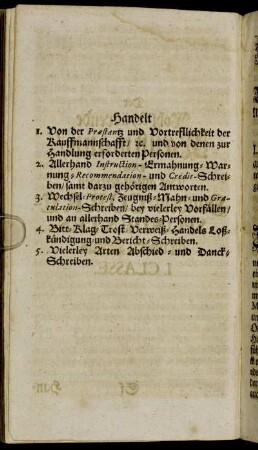 Handelt
1. Von der Præstantz und Vortreflichkeit der
Kauffmannschafft/ ꝛc. und von denen zur
Handlung erforderten Personen.
2. Allerhand Instruction- Ermahnung- War-
nung- Recommendation- und Credit-Schrei-
ben/ samt darzu gehörigen Antworten.
3. Wechsel-Protest, Zeugniß-Mahn-und Gra-
tulation-Schreiben/ bey vielerley Vorfällen/
und an allerhand Standes-Personen.
4. Bitt-Klag-Trost-Verweiß-Handels Loß-
kündigung-und Bericht-Schreiben.
5. Vielerley Arten Abschied- und Danck-
Schreiben.